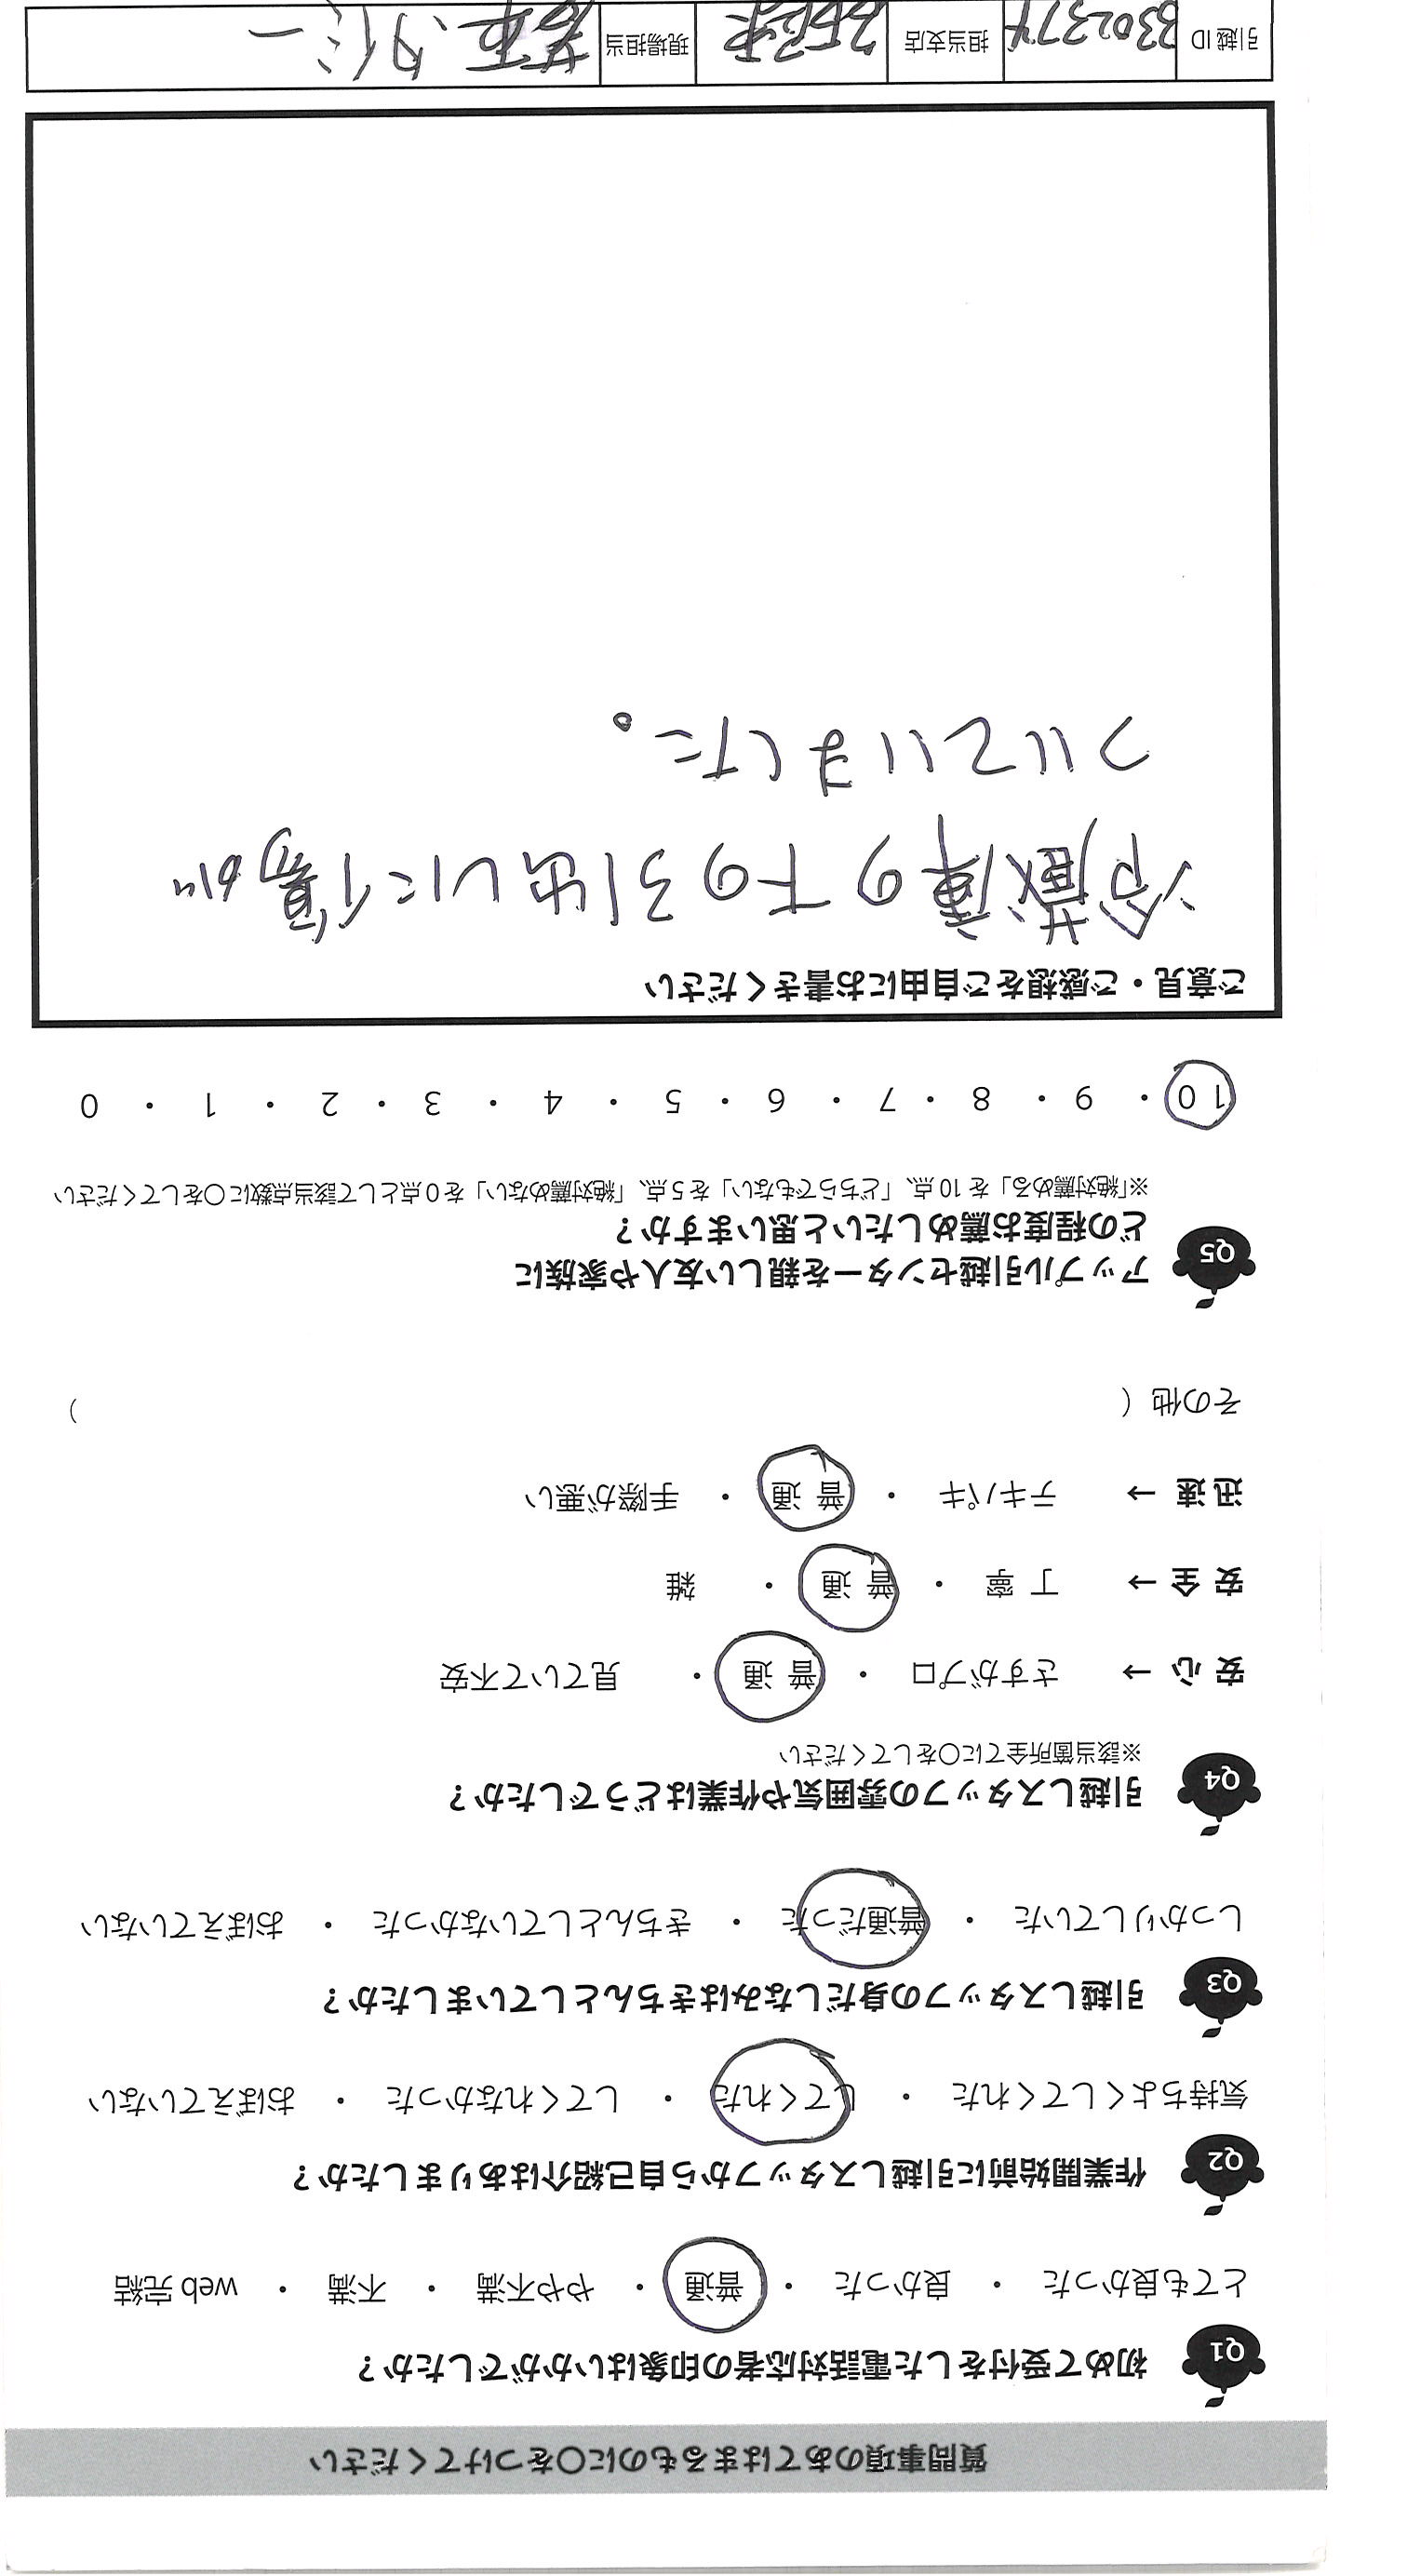 質問事項のあてはまるものに○をつけてください
Q1 初めて受付をした電話対応者の印象はいかがでしたか？
とても良かった ・ 良かった ・ 普通 ・ やや不満 ・ 不満 ・ web 完結
Q2 作業開始前に引越しスタッフから自己紹介はありましたか？
気持ちよくしてくれた ・ してくれた ・ してくれなかった ・ おぼえていない
Q3 引越しスタッフの身だしなみはきちんとしていましたか？
しっかりしていた ・ 普通だった ・ きちんとしていなかった ・ おぼえていない
Q4 引越しスタッフの雰囲気や作業はどうでしたか？
※該当箇所全てに○をしてください
安 心 → さすがプロ ・ 普 通 ・ 見ていて不安
安 全 → 丁 寧 ・ 普 通 ・ 雑
迅 速 → テキパキ ・ 普 通 ・ 手際が悪い
その他（ ）
Q5 アップル引越センターを親しい友人や家族に
どの程度お薦めしたいと思いますか？
※「絶対薦める」を 10 点、「どちらでもない」を 5 点、「絶対薦めない」を 0 点として該当点数に○をしてください
10 ・ 9 ・ 8 ・ 7 ・ 6 ・ 5 ・ 4 ・ 3 ・ 2 ・ 1 ・ 0
ご意見・ご感想をご自由にお書きください
冷蔵庫の下の引出しに傷が
ついていました。
引越 ID 3302374 担当支店 現場担当